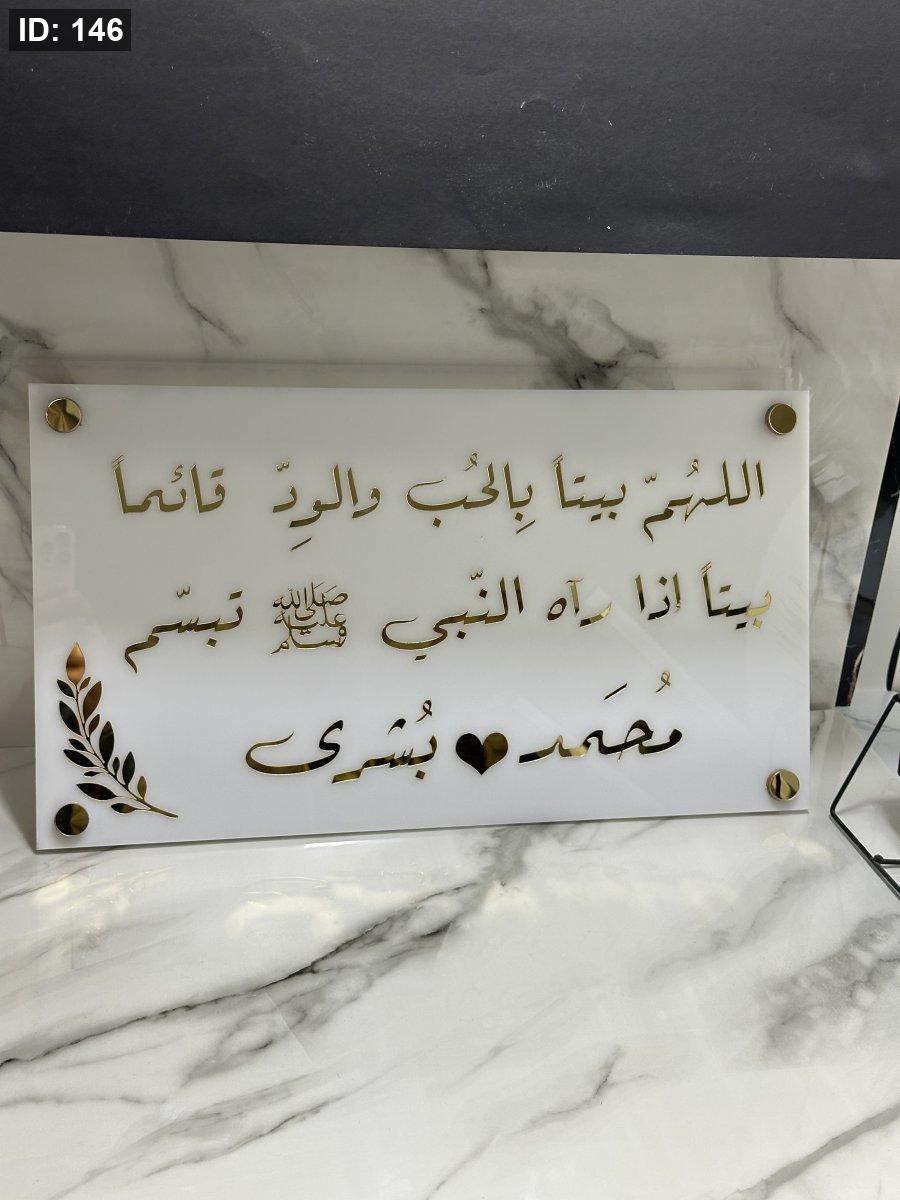 ID: 146
اللهُمّ بيتاً بِالحُب والوِدّ قائماً
بيتاً إذا رآه النّبي ﷺ تبسّم
مُحَمد ♥ بُشرى